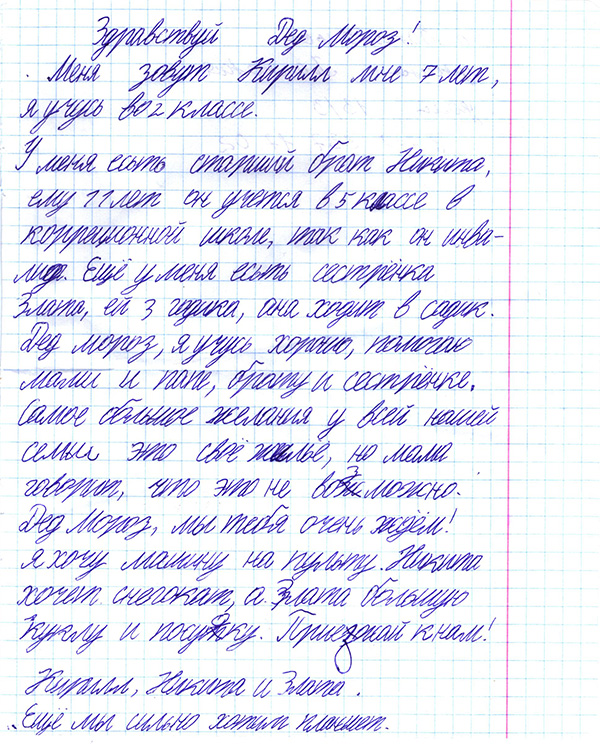 Здравствуй Дед Мороз!
Меня зовут Кирилл мне 7 лет,
я учусь во 2 классе.
У меня есьть старший брат Никита,
ему 11 лет он учется в 5 классе в
корреционной шкале, так как он инва-
лид. Ещё у меня есьть сестрёнка
Злата, ей 3 годика, она ходит в садик.
Дед мороз, я учусь хорошо, помогаю
мами и папе, брату и сестрёнке.
Самое большое желания у всей нашей
семьи это своё жильё, но мама
говорит, что это не возможно.
Дед Мороз, мы тебя очень ждём!
я хочу машину на пульту. Никита
хочет снегокат, а Злата большую
куклу и посудку. Приезжай к нам!
Кирилл, Никита и Злата.
Ещё мы сильно хотим планшет.